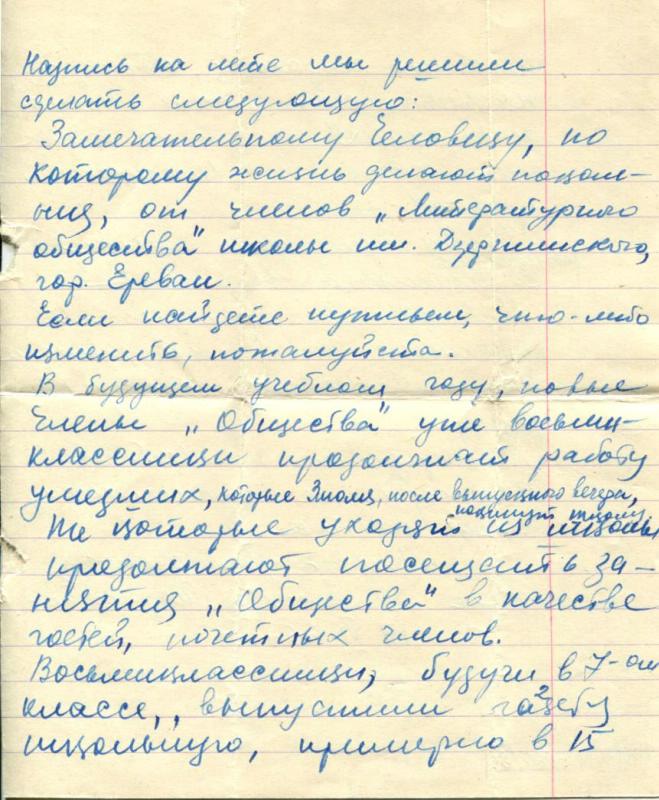 Надпись на лите мы решили
сделать следующую:
Замечательному Человеку, по
которому жизнь делают школь-
ния, от членов „Литературного
общества" школы им. Дзержинского,
гор. Ереван.
Если найдете нужным, что-либо
изменить, пожалуйста.
В будущем учебном году, новые
члены „Общества" уже восьми-
классники продолжат работу
ушедших, которые
после выпускного вечера,
покинут школу.
Те которые уходят из школы
продолжают посещать за-
нятия „Общества" в качестве
гостей, почетных членов.
Восьмиклассники, будучи в 7-ом
классе, выпустили газету
школьную, примерно в 15